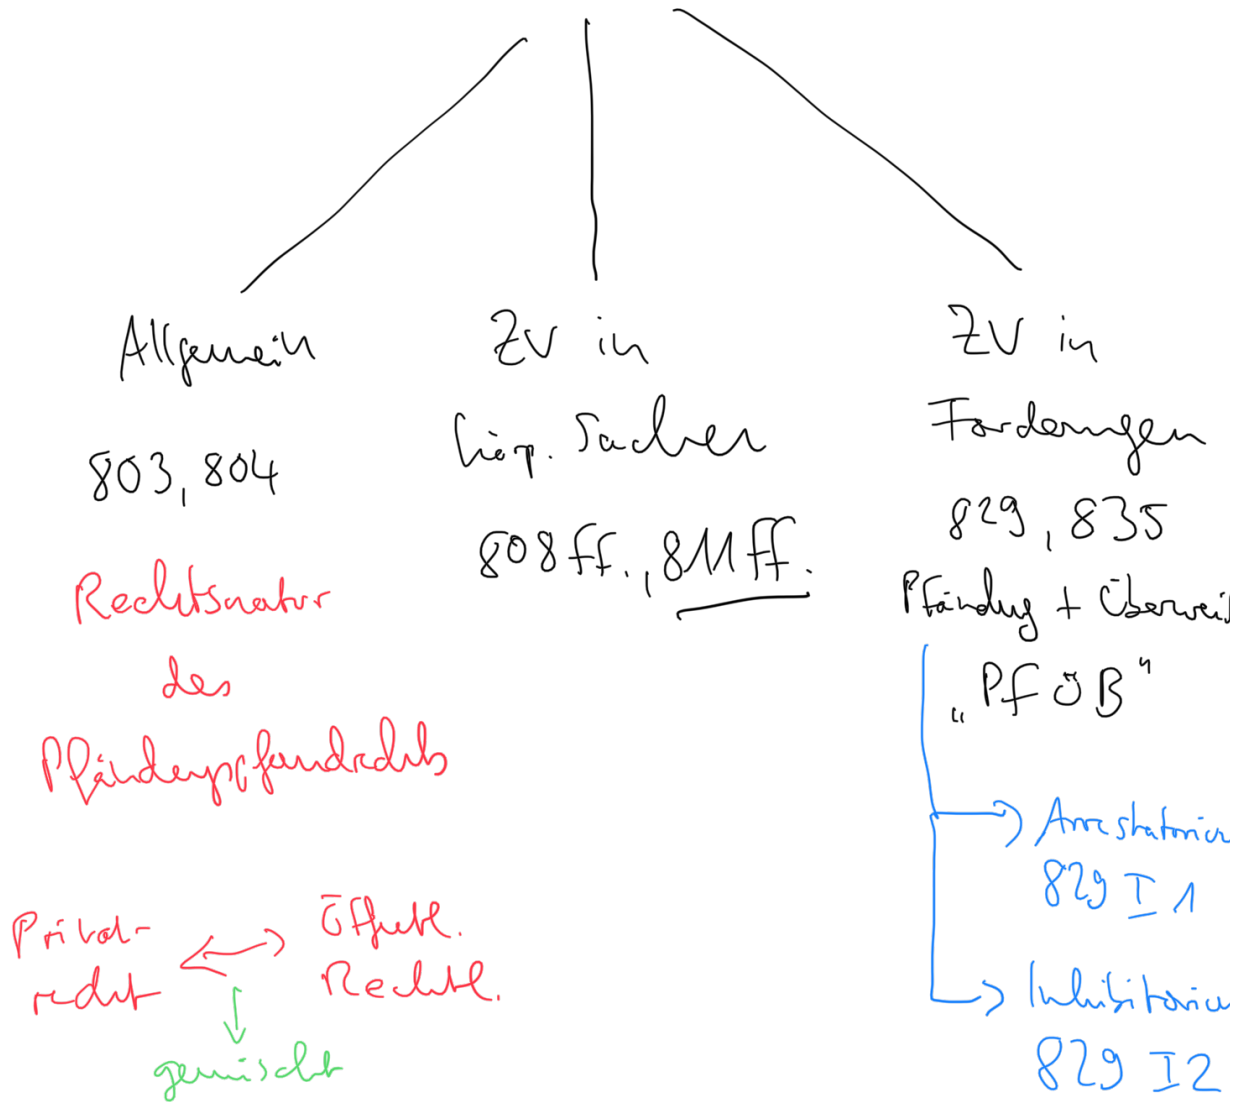 Allgemein
803, 804
Rechtsnatur
des
Pfändungspfandrechts
Privat-
recht
Öffentl.
Rechtl.
gemischt
ZV in
körp. Sachen
808 ff., 811 ff.
ZV in
Forderungen
829, 835
Pfändung + Überweis
„PfÜB"
Arrestatorium
829 I 1
Inhibitorium
829 I 2